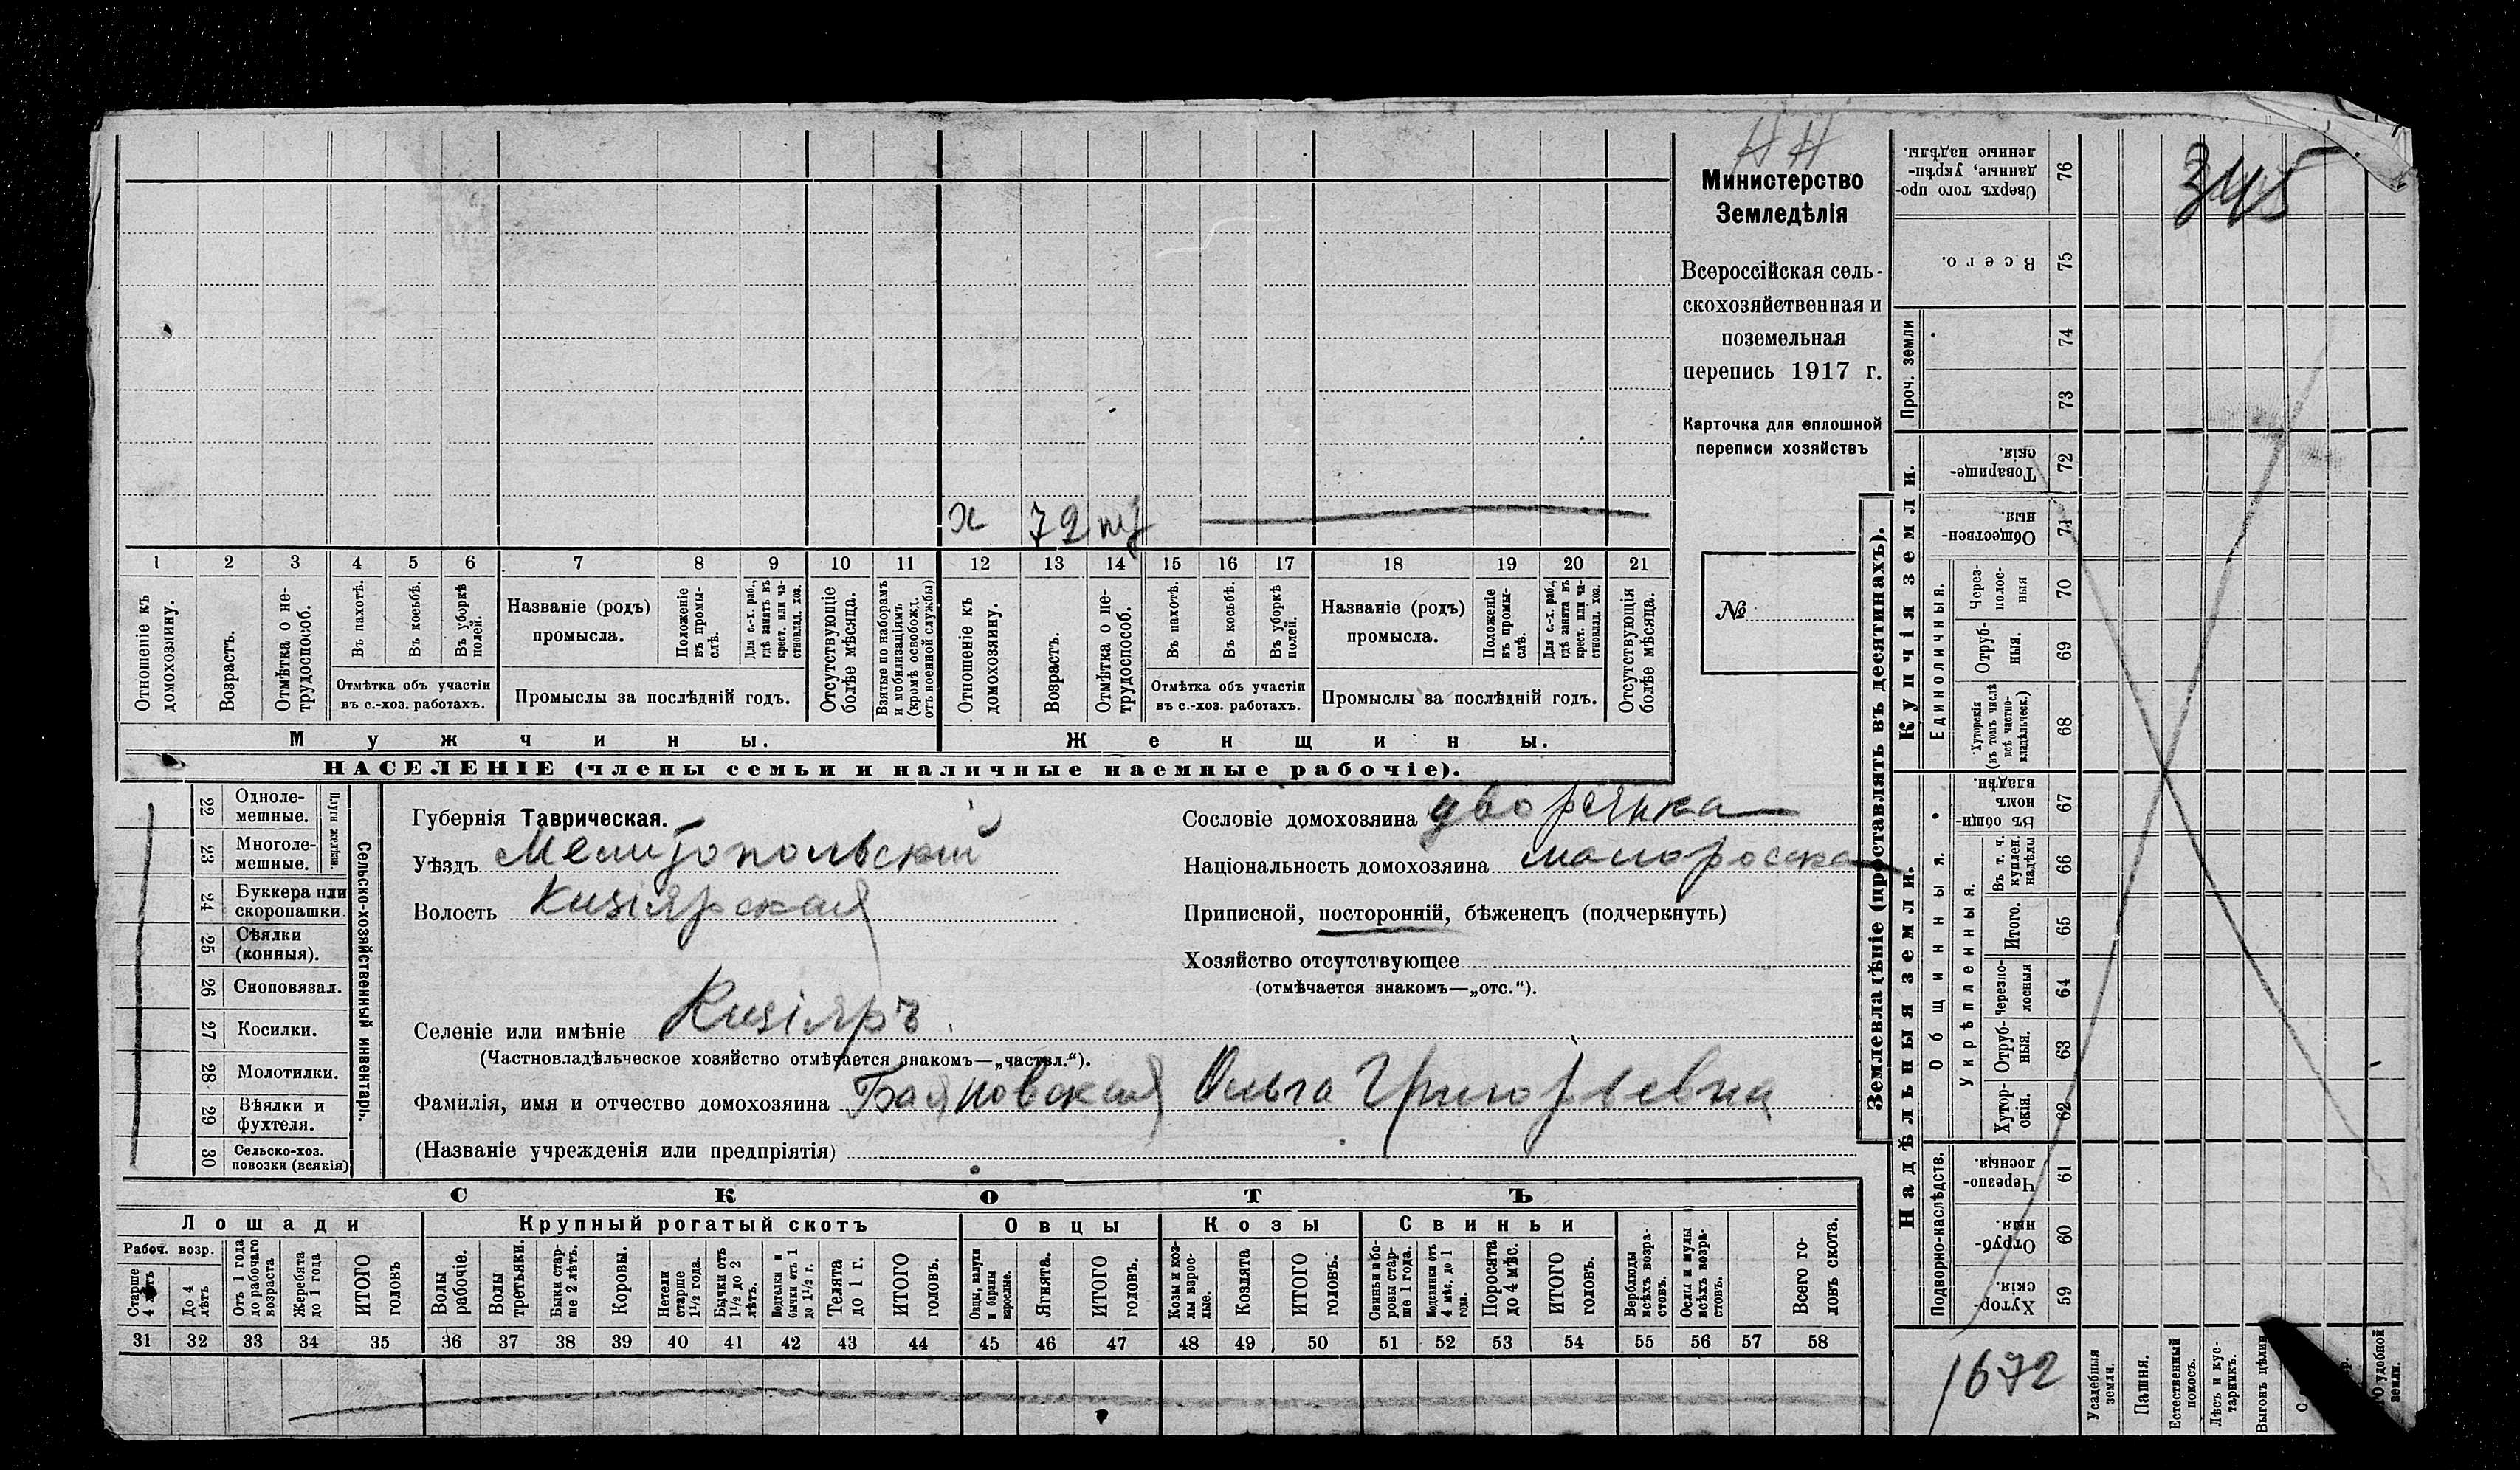 НН
Министерство
Земледѣлія
Всероссійская сель-
скохозяйственная и
поземельная
перепись 1917 г.
Карточка для сплошной
переписи хозяйствъ
№
х 72 нт
1 2 3 4 5 6 7 8 9 10 11 12 13 14 15 16 17 18 19 20 21
Отношеніе къ домохозяину.
Возрастъ.
Отмѣтка о не-трудоспособ.
Въ пахотѣ.
Въ косьбѣ.
Въ уборкѣ полей.
Отмѣтка объ участіи
въ с.-хоз. работахъ.
Названіе (родъ)
промысла.
Положеніе въ промы-слѣ.
Для с.-х. раб., гдѣ занятъ въ крест. или ча-стновлад. хоз.
Промыслы за послѣдній годъ.
Отсутствующіе болѣе мѣсяца.
Взятые по наборамъ и мобилизаціямъ (кромѣ освобожд. отъ военной службы)
Отношеніе къ домохозяину.
Возрастъ.
Отмѣтка о не-трудоспособ.
Въ пахотѣ.
Въ косьбѣ.
Въ уборкѣ полей.
Отмѣтка объ участіи
въ с.-хоз. работахъ.
Названіе (родъ)
промысла.
Положеніе въ промы-слѣ.
Для с.-х. раб., гдѣ занята въ крест. или ча-стновлад. хоз.
Промыслы за послѣдній годъ.
Отсутствующія болѣе мѣсяца.
Мужчины.
Женщины.
НАСЕЛЕНІЕ (члены семьи и наличные наемные рабочіе).
22 Одноле-мешные.
23 Многоле-мешные.
Плуги желѣзн.
24 Буккера или скоропашки
25 Сѣялки (конныя).
26 Сноповязал.
27 Косилки.
28 Молотилки.
29 Вѣялки и фухтеля.
30 Сельско-хоз. повозки (всякія)
Сельско-хозяйственный инвентарь.
Губернія Таврическая.
Уѣздъ Мелитопольскій
Волость Кизіярская
Селеніе или имѣніе Кизіяръ
(Частновладѣльческое хозяйство отмѣчается знакомъ—„частвл.“).
Фамилія, имя и отчество домохозяина Баяновская Ольга Григорьевна
(Названіе учрежденія или предпріятія)
Сословіе домохозяина дворянка
Національность домохозяина малоросска
Приписной, посторонній, бѣженецъ (подчеркнуть)
Хозяйство отсутствующее
(отмѣчается знакомъ—„отс.“).
СКОТЪ
Лошади
Крупный рогатый скотъ
Овцы
Козы
Свиньи
Рабоч. возр.
Старше 4 лѣтъ
До 4 лѣтъ
Отъ 1 года до рабочаго возраста
Жеребята до 1 года
ИТОГО головъ
Волы рабочіе.
Волы третьяки.
Быки стар-ше 2 лѣтъ.
Коровы.
Нетели старше 1½ года.
Бычки отъ 1½ до 2 лѣтъ.
Подтелки и бычки отъ 1 до 1½ г.
Телята до 1 г.
ИТОГО головъ.
Овцы, валухи и бараны взрослые.
Ягнята.
ИТОГО головъ.
Козы и коз-лы взрос-лые.
Козлята
ИТОГО головъ.
Свиньи и бо-ровы стар-ше 1 года.
Подсвинки отъ 4 мѣс. до 1 года.
Поросята до 4 мѣс.
ИТОГО головъ.
Верблюды всѣхъ возра-стовъ.
Ослы и мулы всѣхъ возра-стовъ.
Всего го-ловъ скота.
31 32 33 34 35 36 37 38 39 40 41 42 43 44 45 46 47 48 49 50 51 52 53 54 55 56 57 58
Землевладѣніе (проставлять въ десятинахъ).
Купчія земли.
Надѣльныя земли.
345
Сверхъ того про-данные, укрѣп-ленные надѣлы. 76
Всего. 75
Проч. земли
74
73
Товарище-скія. 72
Обществен-ныя. 71
Единоличныя.
Через-полос-ныя 70
Отруб-ныя. 69
Хуторскія (въ томъ числѣ всѣ частно-владѣльческ.) 68
Общинныя.
Въ общин-номъ владѣн. 67
Въ т. ч. куплен. надѣлы 66
Укрѣпленныя.
Итого. 65
Черезпо-лосныя 64
Отруб-ныя. 63
Хутор-скія. 62
Подворно-наслѣдств.
Черезпо-лосныя. 61
Отруб-ныя. 60
Хутор-скія. 59
1672
Усадебныя земли.
Пашня.
Естественный покосъ.
Лѣсъ и кус-тарникъ.
Выгонъ цѣлин
удобной земли.